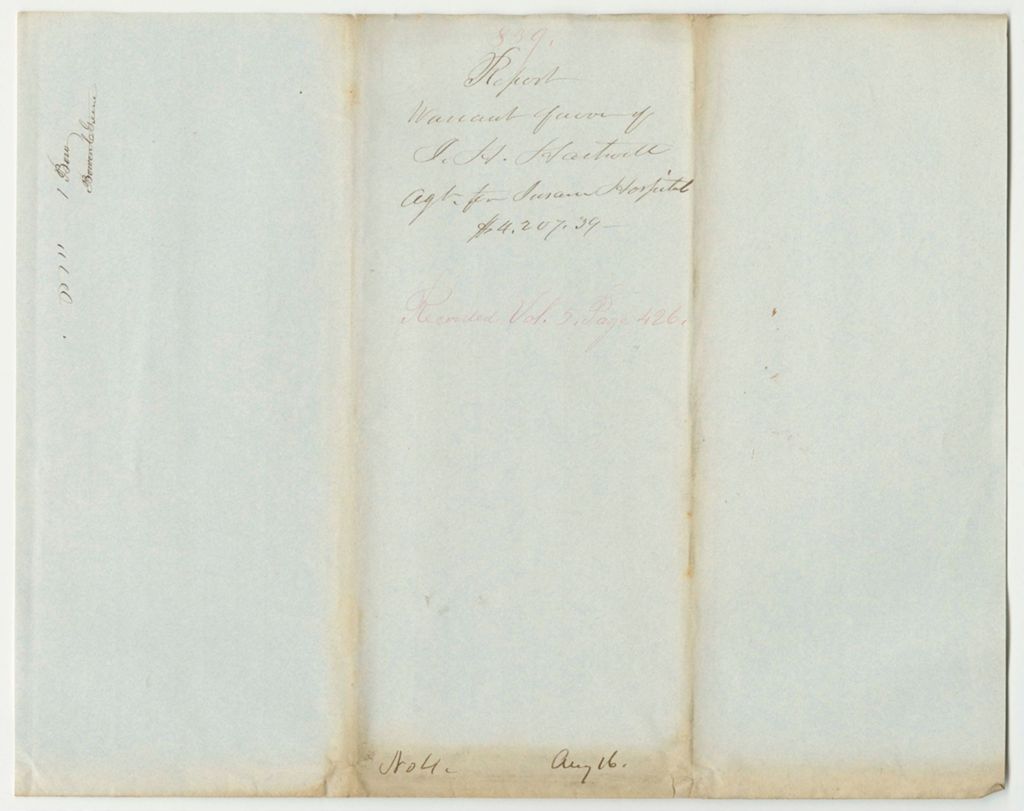 839.
Report
Warrant favor of
J. H. Hartwell
Agt. for Insane Hospital
$4.207.39
Recorded Vol. 5. Page 426.
No 4.
Aug 16.
1